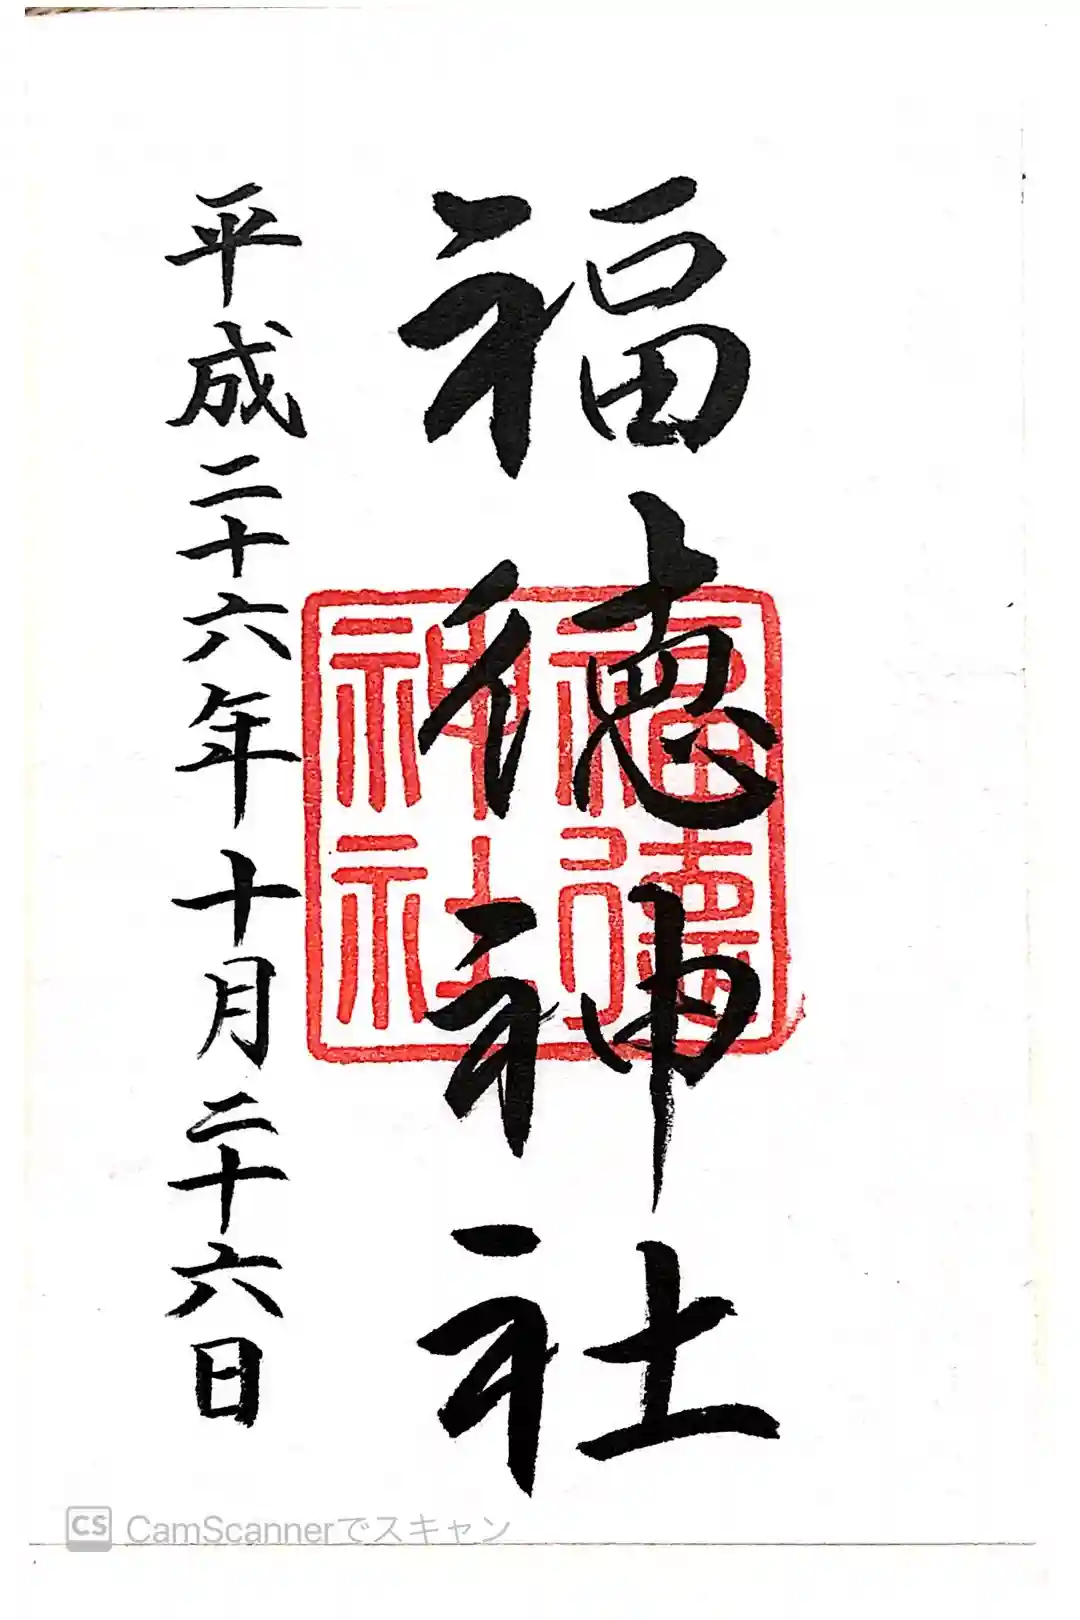 福徳神社
福徳
神社
平成二十六年十月二十六日
CS CamScannerでスキャン